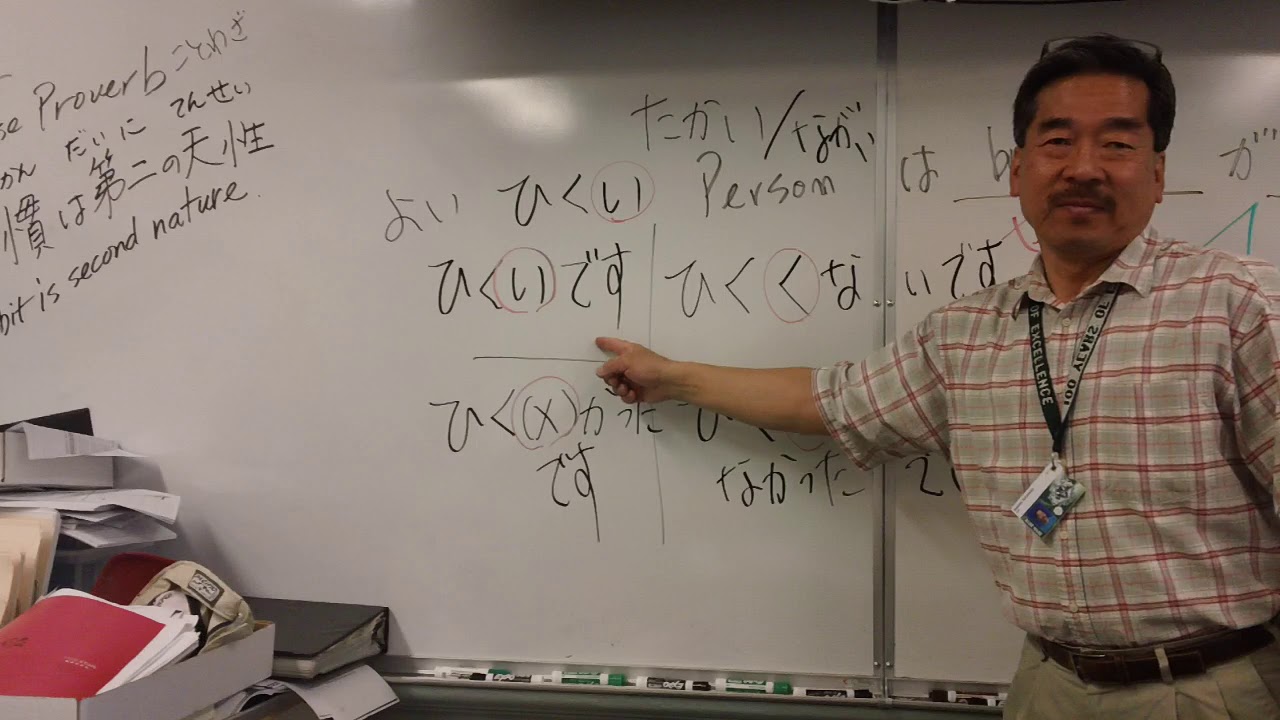 se Proverb ことわざ
かん だいに てんせい
慣は第二の天性
bit is second nature.
たかい/ながい
よい ひくい Person は b が
ひくいです ひくくないです
ひく(x)かった ひく
です なかった で
OF EXCELLENCE
100 YEARS OF
EXPO